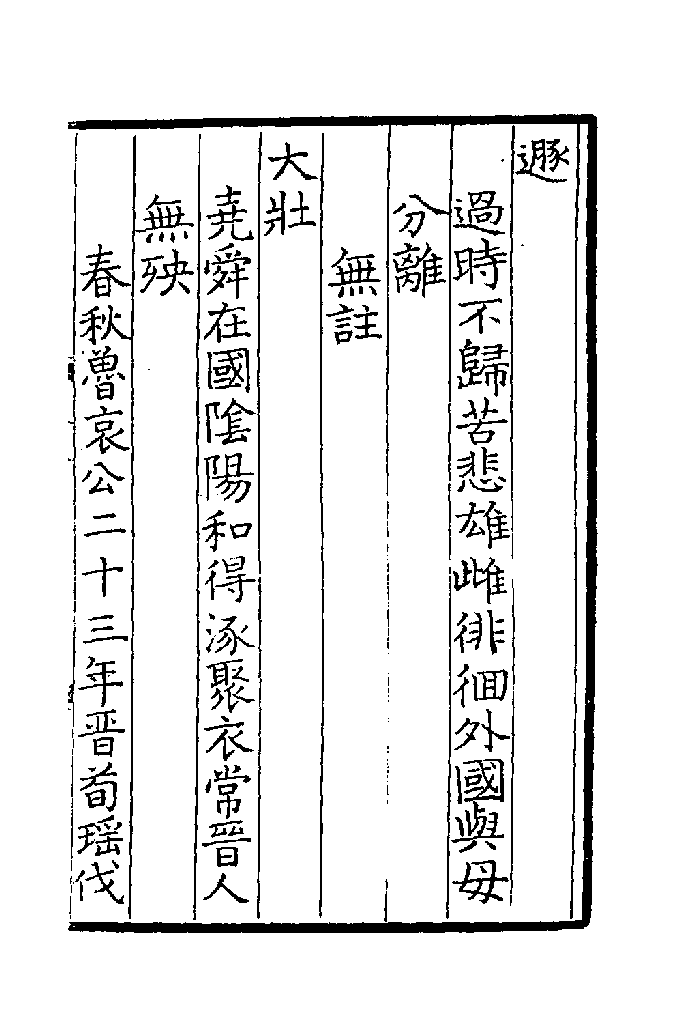 遯
過時不歸苦悲雄雌徘徊外國與母
分離
無註
大壯
堯舜在國陰陽和得涿聚衣常晉人
無殃
春秋魯哀公二十三年晋荀瑶伐